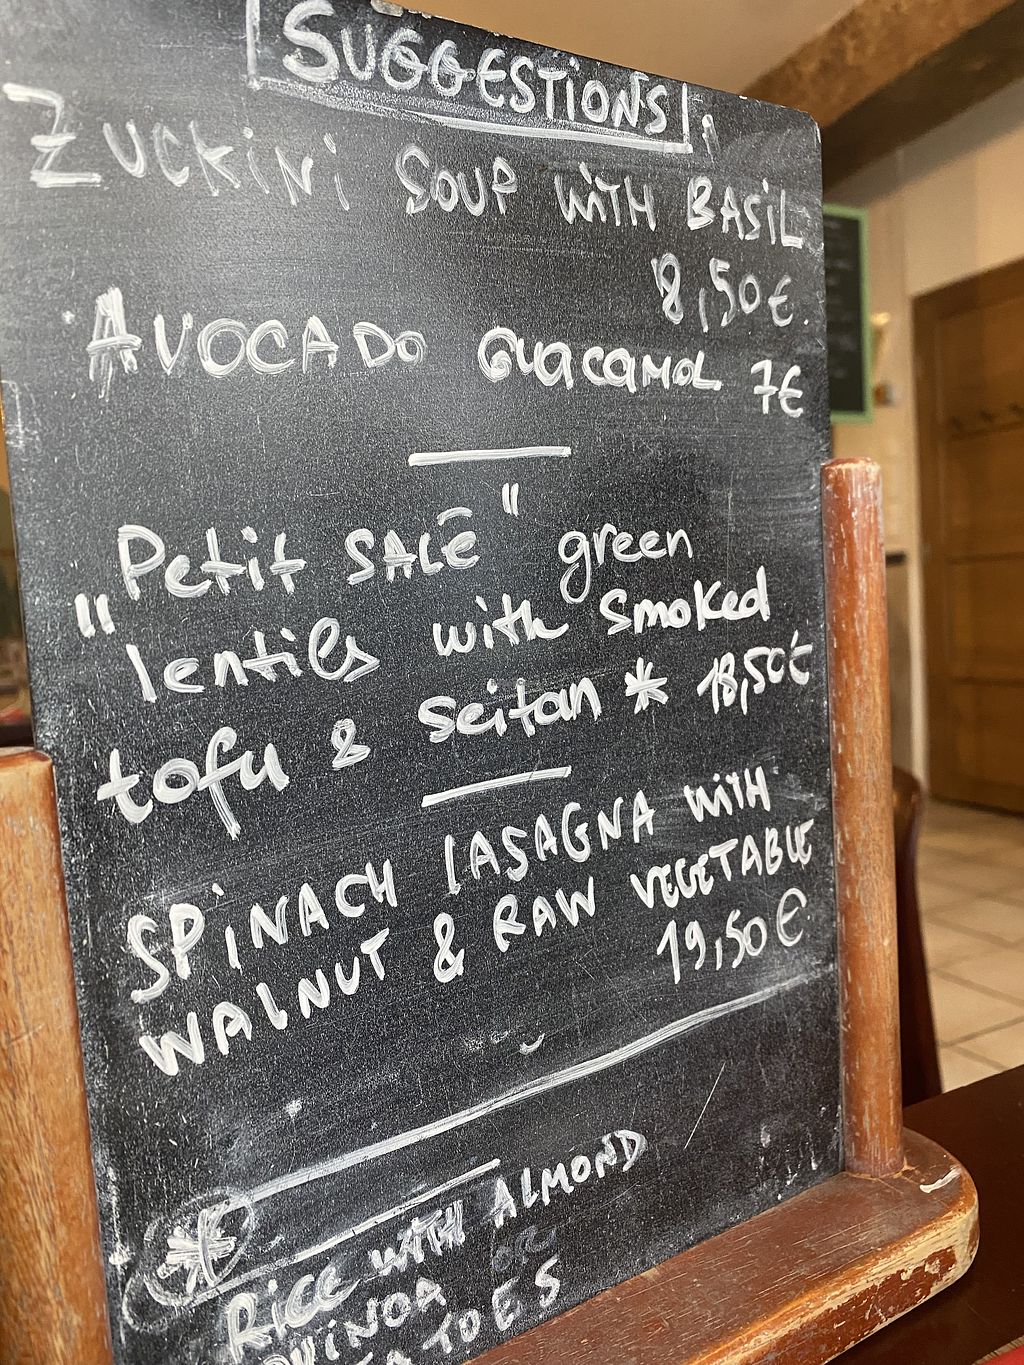 SUGGESTIONS
ZUCKINI SOUP WITH BASIL
8,50€
AVOCADO GUACAMOL 7€
"Petit SALÉ" green
lentils with smoked
tofu & seitan * 18,50€
SPINACH LASAGNA WITH
WALNUT & RAW VEGETABLE
19,50€
*
RICE WITH ALMOND
OR